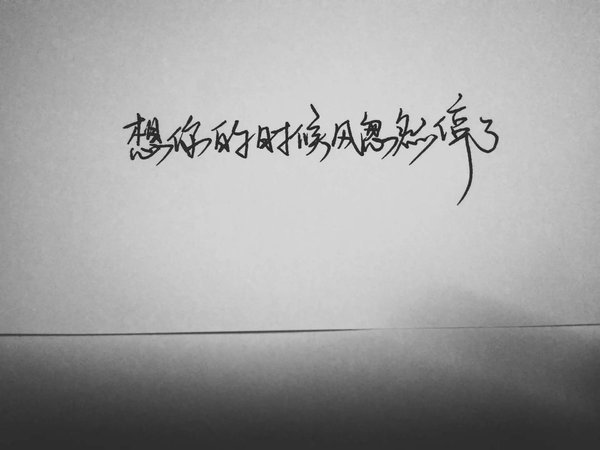 想你的时候风忽然停了